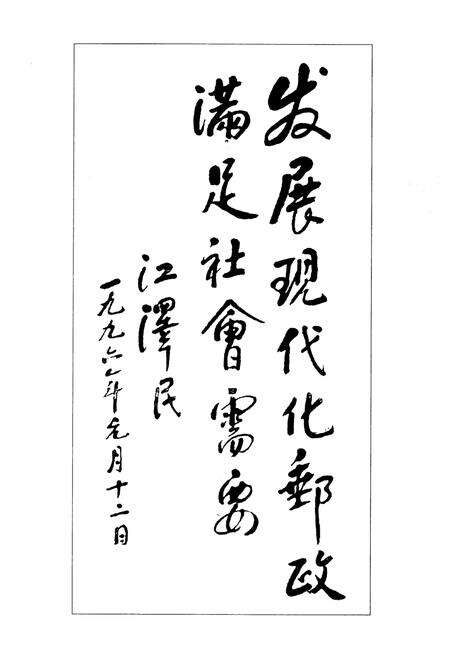 发展现代化郵政
满足社會需要
江澤民
一九九六年元月十二日